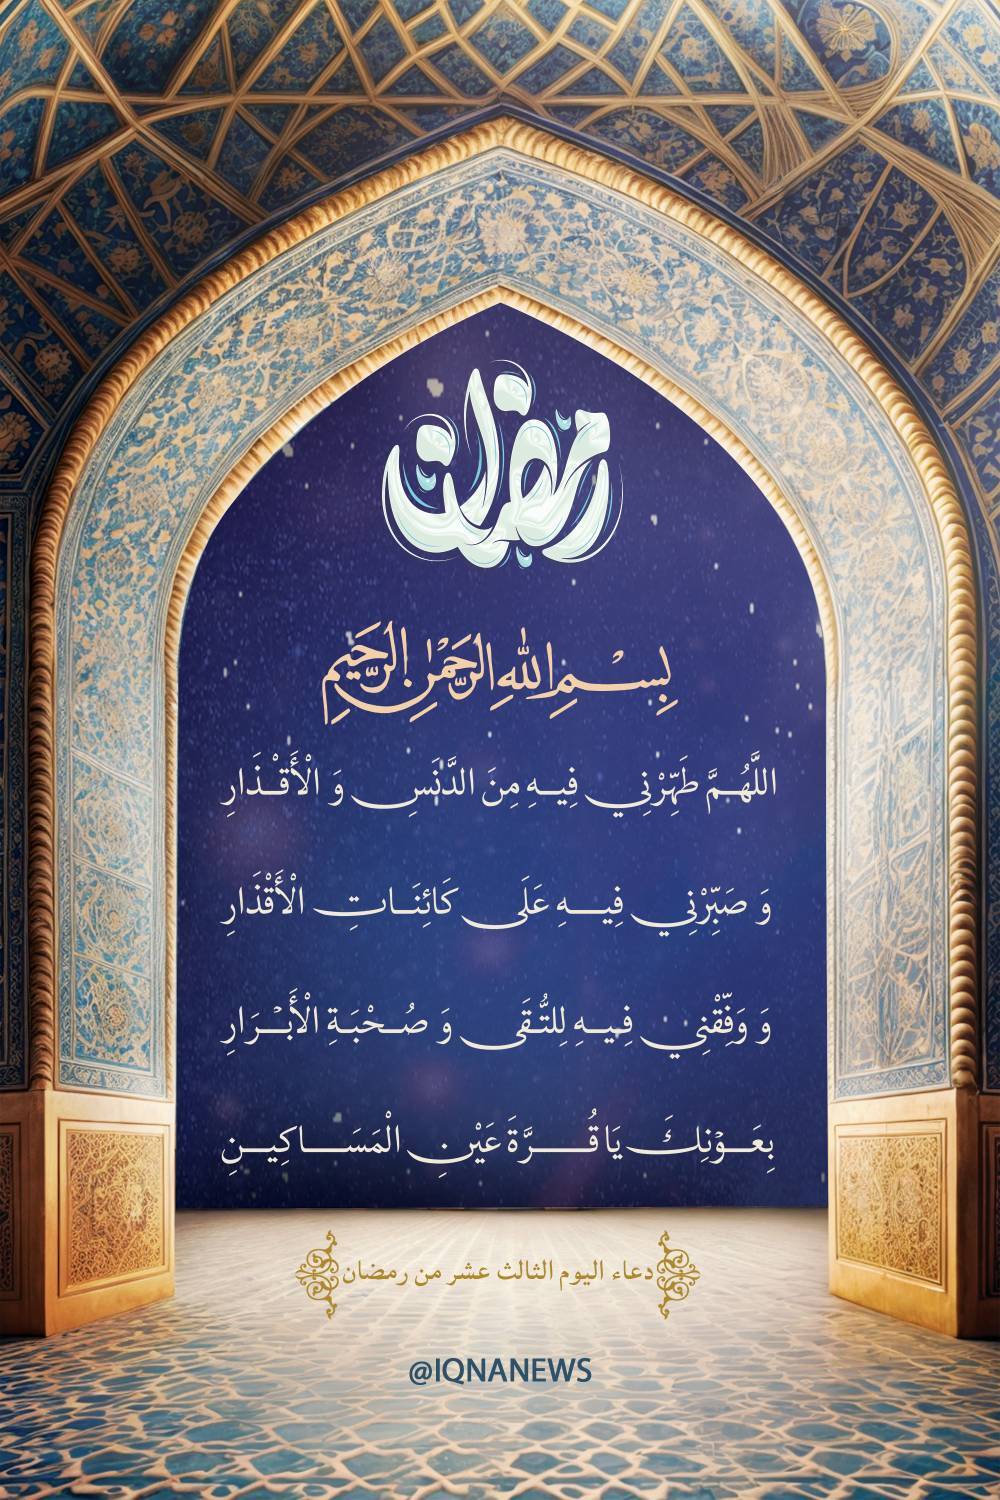 رمضان
بِسْمِ اللهِ الرَّحْمٰنِ الرَّحِيمِ
اللَّهُمَّ طَهِّرْنِي فِيهِ مِنَ الدَّنَسِ وَ الْأَقْذَارِ
وَ صَبِّرْنِي فِيهِ عَلَى كَائِنَاتِ الْأَقْدَارِ
وَ وَفِّقْنِي فِيهِ لِلتُّقَى وَ صُحْبَةِ الْأَبْرَارِ
بِعَوْنِكَ يَا قُرَّةَ عَيْنِ الْمَسَاكِينِ
دعاء اليوم الثالث عشر من رمضان
@IQNANEWS